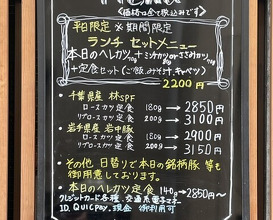 〈価格は全て税込みです〉
平日限定 ※期間限定
ランチ セットメニュー
本日のヘレカツ70g+ミンチカツor ささみカツ
+定食セット(ご飯,みそ汁,キャベツ)
2200円
・千葉県産 林SPF
ロースカツ定食 180g→2850円
リブロースカツ定食 200g→3100円
・岩手県産 岩中豚
ロースカツ定食 180g→2900円
リブロースカツ定食 200g→3150円
・その他 日替りで本日の銘柄豚 等も
御用意しております。
・本日のヘレカツ定食 140g→2850円〜
クレジットカード各種・交通系電子マネー
iD、QUICPay、現金 御利用可